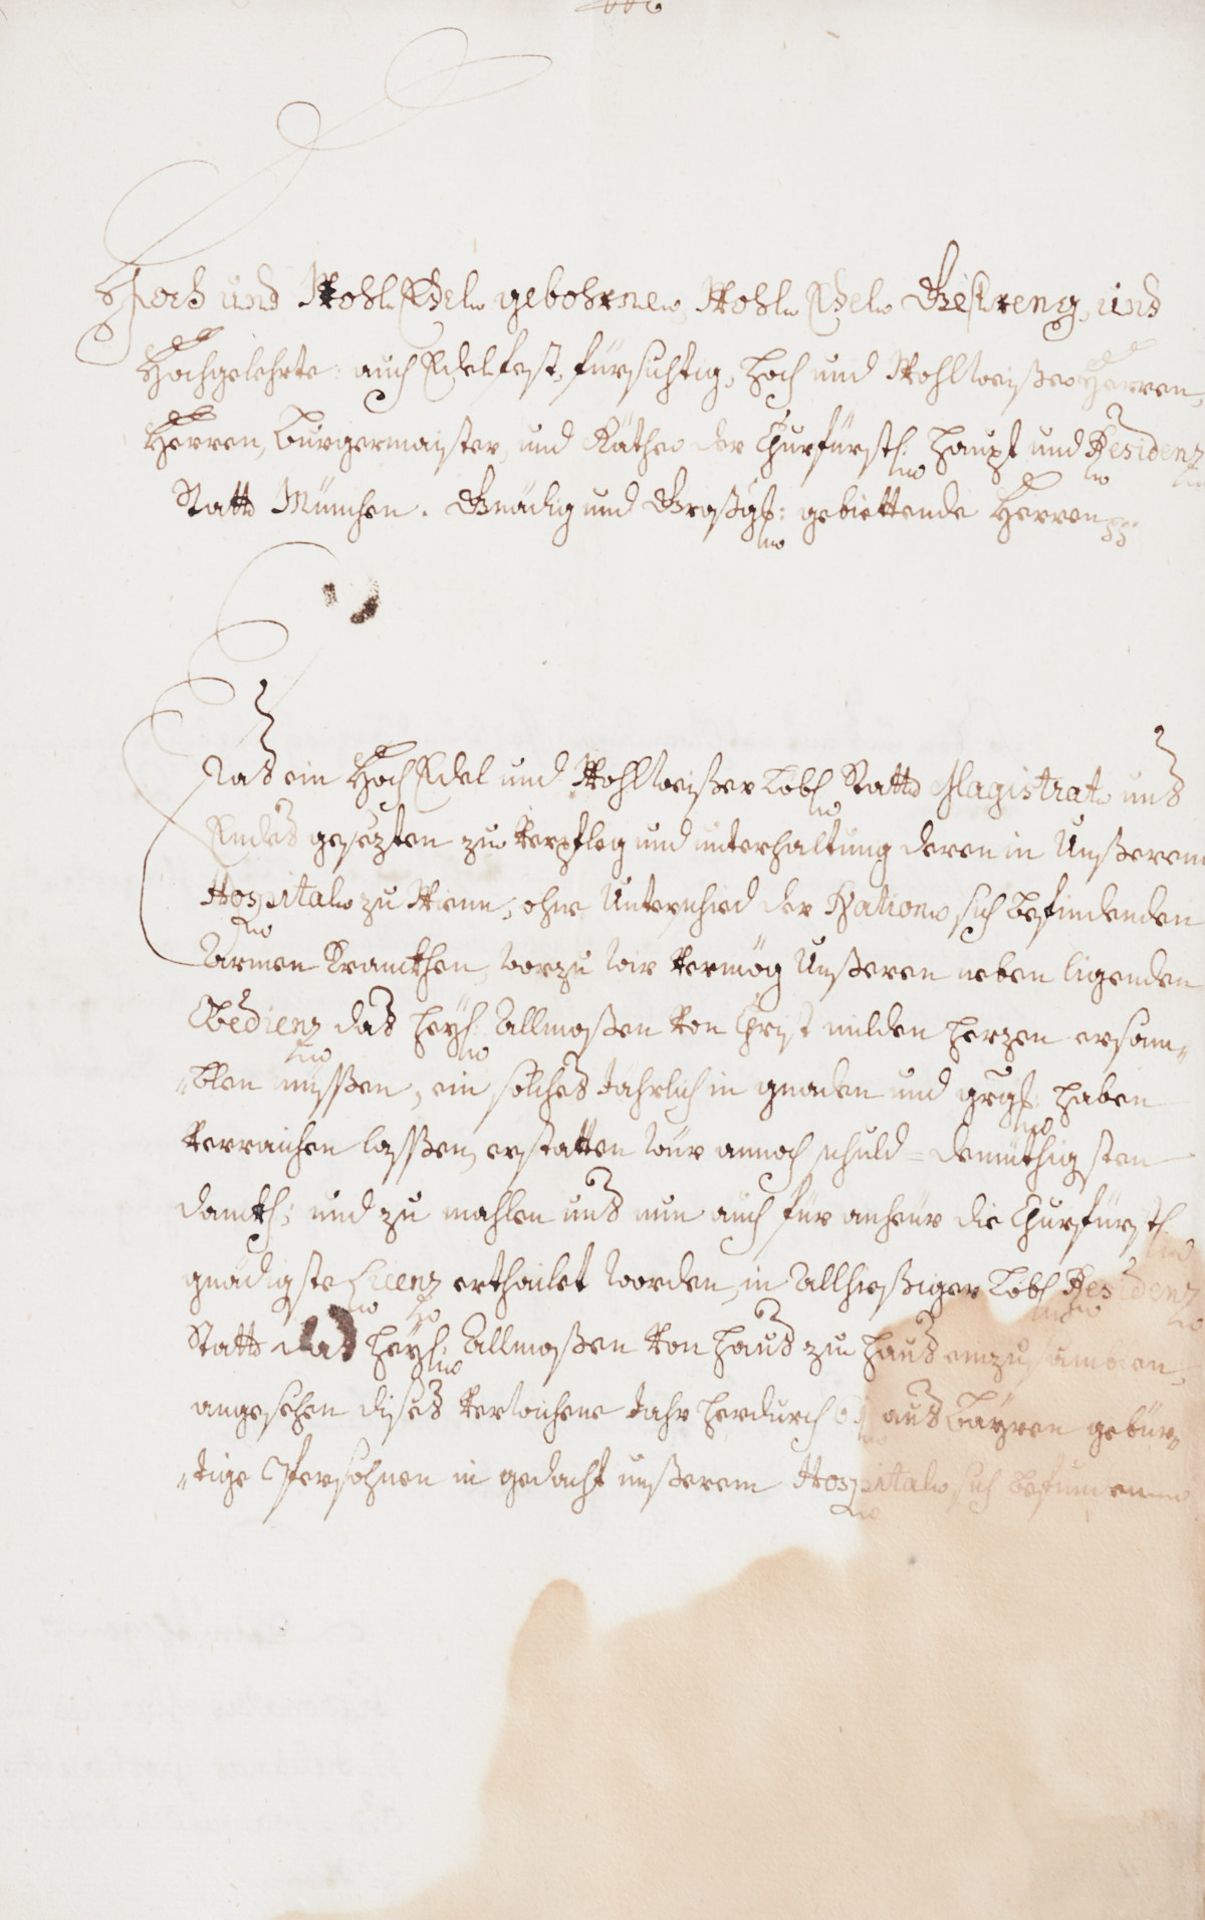 Hoch und Wohl Edel gebohrne, Wohl Edel Gestreng, und
Hochgelehrte: auch Edelfest, fürsichtig, hoch und Wohlweiße Herren,
Herren, Burgermaister, und Räthe der Churfürstl: haupt und Residenz
Statt München. Gnädig und Großgst: gebiettende Herren
Das ein Hoch Edel und Wohlweißer Löbl Statt Magistrat uns
Endes gesezten zu Verpfleg und unterhaltung deren in Unßerem
Hospital zu Wienn, ohne Unterschied der Nation sich befindenden
Armen Kranckhen, worzu wir Vermög Unßeren neben ligenden
Obedienz das heyl: Allmoßen von Christ milden herzen ersam„
„blen müssßen, ein solches Jährlich in gnaden und grgst: haben
Verraichen lassßen, erstatten wür annoch schuld= demüthigsten
danckh; und zu mahlen uns nun auch für anheür die Churfürstl
gnädigste Licenz erthailet worden, in Allhießiger Löbl Residenz
Statt das heyl: Allmoßen von hauß zu hauß einzusamblen,
angesehen dißes Verwichene Jahr herdurch aus Bayren gebür„
„tige Persohnen in gedacht unßerem Hospital sich befunden